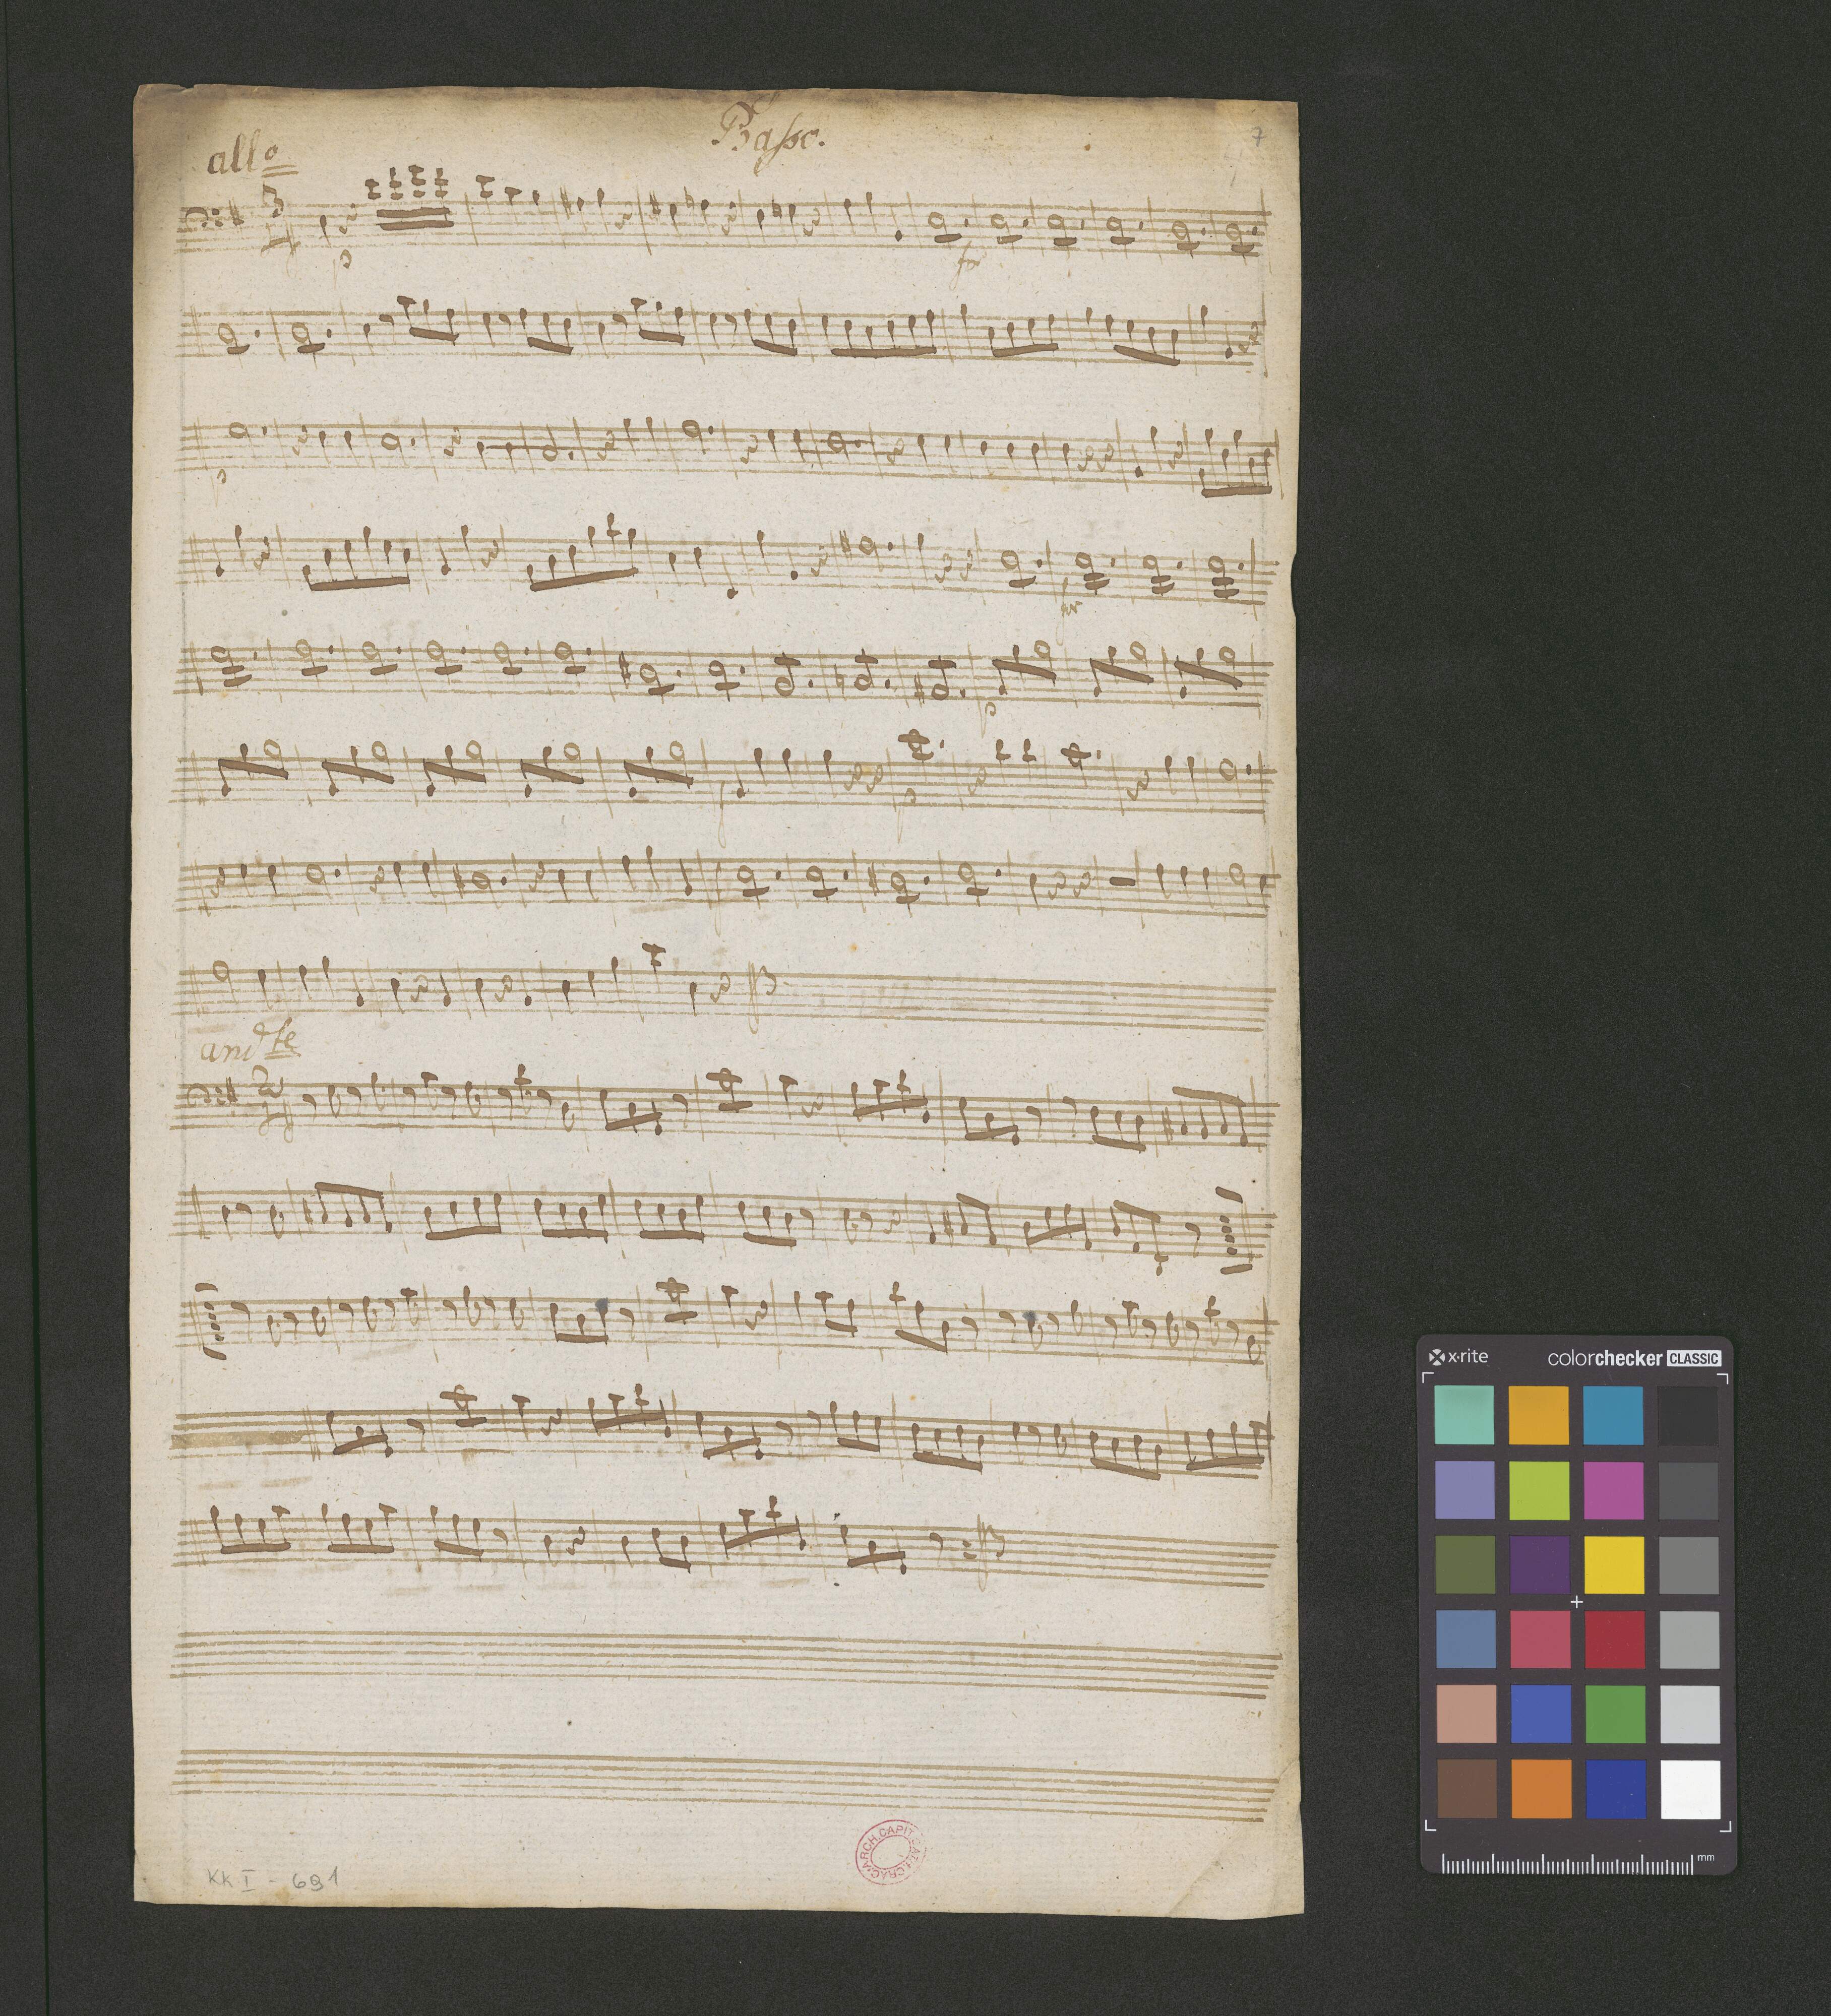 Basso.
7
allo
3
4
p
for
p
for
p
f
p
f
andte
2
4
KK I - 691
ARCH. CAPIT. CRAC.
x·rite colorchecker CLASSIC
mm